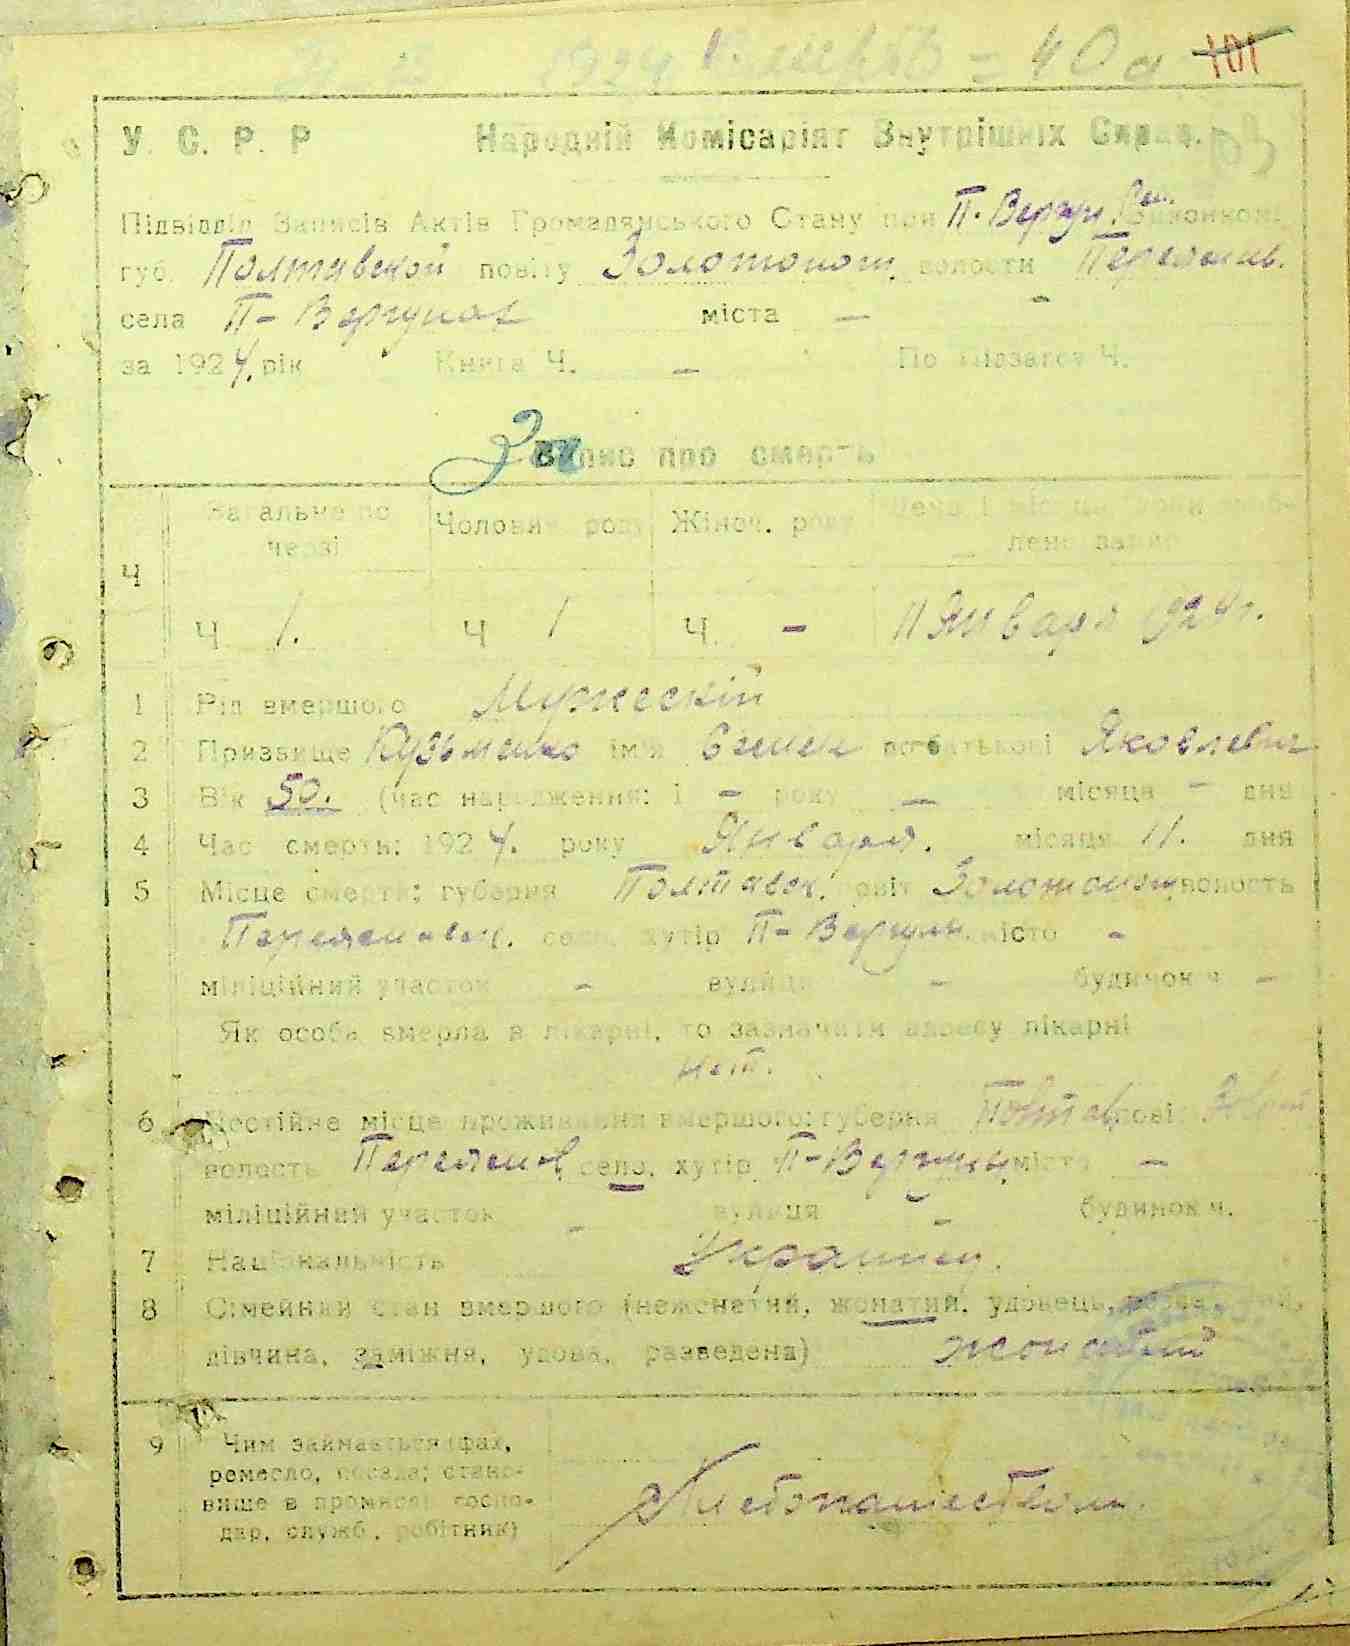 1924 = 40 а 101
У. С. Р. Р Народній Комісаріят Внутрішніх Справ.
Підвідділ Записів Актів Громадянського Стану при П-Вергун
губ. Полтавской повіту Золотонош. волости
села П-Вергунах міста —
за 1924. рік Книга Ч. — По Ч.
Запис про смерть
Загальне по Чоловіч. роду Жіноч. роду
черзі
Ч
Ч 1. Ч 1 Ч. — 11 Января 1924 г.
1 Рід вмершого Мужескій
2 Призвище Кузьменко ім'я Семен по батькові Яковлевич
3 Вік 50. (час народження: 1 — року — місяця — дня
4 Час смерти: 1924. року Января. місяця 11. дня
5 Місце смерти: губерня Полтавск. повіт Золотонош. волость
село, хутір П-Вергуны місто -
міліційний участок - вулиця - будинок ч. —
Як особа вмерла в лікарні, то зазначити адресу лікарні
нет.
6 Постійне місце проживання вмершого: губерня Полтав. повіт
волость село, хутір П-Вергуны місто —
міліційний участок — вулиця — будинок ч.
7 Національність
8 Сімейний стан вмершого (неженатий, жонатий, удовець,
дівчина, заміжня, удова, разведена) жонатий
9 Чим займається (фах,
ремесло, посада; стано-
вище в промислі: госпо-
дар, служб., робітник)
Хлебопашеством.